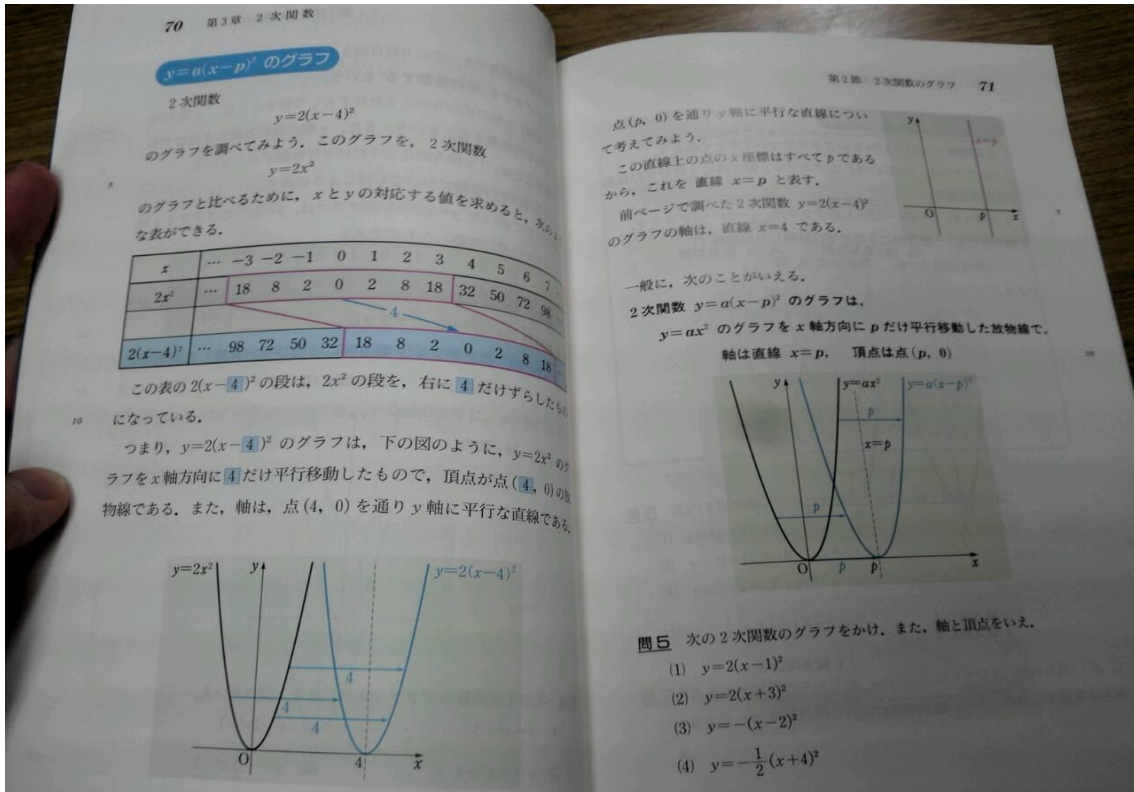 70 第3章 2次関数
y=a(x−p)² のグラフ
2次関数
y=2(x−4)²
のグラフを調べてみよう．このグラフを，2次関数
y=2x²
5
のグラフと比べるために，xとyの対応する値を求めると，次の
な表ができる．
x … −3 −2 −1 0 1 2 3 4 5 6 7 …
2x² … 18 8 2 0 2 8 18 32 50 72 98 …
4
2(x−4)² … 98 72 50 32 18 8 2 0 2 8 18 …
この表の2(x−4)²の段は，2x²の段を，右に4だけずらしたもの
10 になっている．
つまり，y=2(x−4)²のグラフは，下の図のように，y=2x²のグ
ラフをx軸方向に4だけ平行移動したもので，頂点が点(4，0)の放
物線である．また，軸は，点(4，0)を通りy軸に平行な直線である．
y=2x² y y=2(x−4)²
4
4
4
O 4 x
第2節 2次関数のグラフ 71
点(p，0)を通りy軸に平行な直線につい
て考えてみよう．
この直線上の点のx座標はすべてpである
から，これを 直線 x=p と表す．
前ページで調べた2次関数 y=2(x−4)²
のグラフの軸は，直線 x=4 である．
y
x=p
O p x
5
一般に，次のことがいえる．
2次関数 y=a(x−p)² のグラフは，
y=ax² のグラフをx軸方向にpだけ平行移動した放物線で，
軸は直線 x=p， 頂点は点(p，0)
10
y y=ax² y=a(x−p)²
p
x=p
p
O p p x
問5 次の2次関数のグラフをかけ．また，軸と頂点をいえ．
(1) y=2(x−1)²
(2) y=2(x+3)²
(3) y=−(x−2)²
(4) y=−1/2(x+4)²